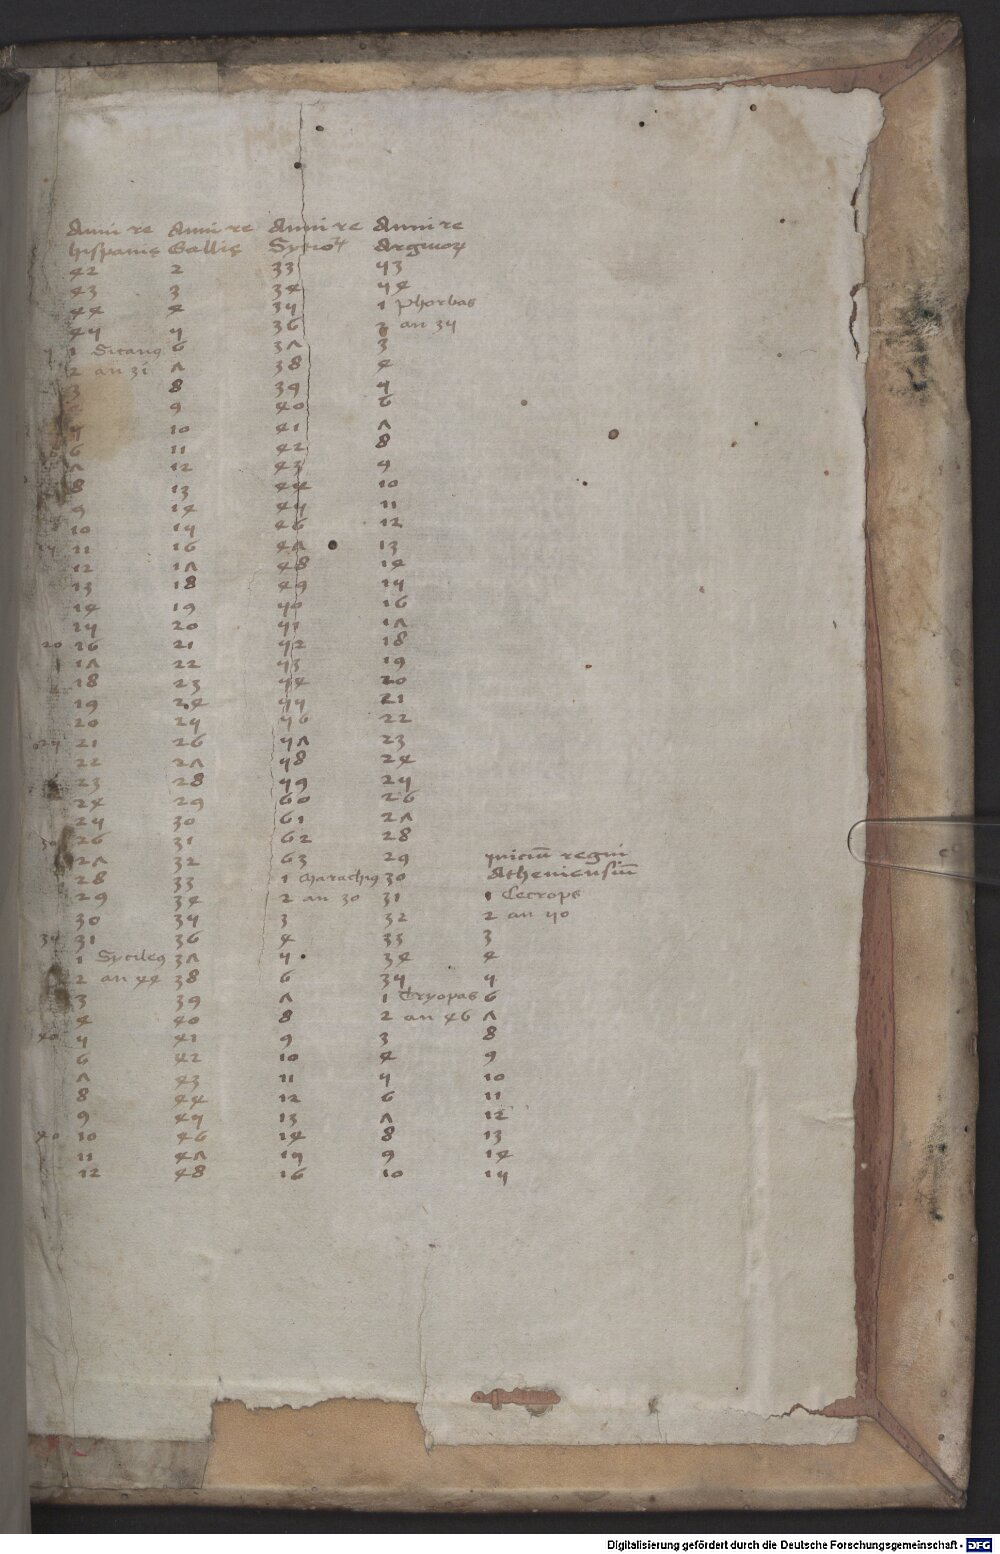 Anni re Anni re Anni re Anni re
hispanie Gallie Sycioꝝ Argiuoꝝ
42 2 33 53
43 3 34 54
44 4 35 1 Phorbas
45 5 36 2 an 35
1 Sicanus 6 37 3
2 an 31 7 38 4
3 8 39 5
9 40 6
5 10 41 7
6 11 42 8
7 12 43 9
8 13 44 10
9 14 45 11
10 15 46 12
11 16 47 13
12 17 48 14
13 18 49 15
14 19 50 16
15 20 51 17
20 16 21 52 18
17 22 53 19
18 23 54 20
19 24 55 21
20 25 56 22
21 26 57 23
22 27 58 24
23 28 59 25
24 29 60 26
25 30 61 27
26 31 62 28
27 32 63 29 Iniciū regni
28 33 1 Marachius 30 Atheniensiū
29 34 2 an 30 31 1 Cecrops
30 35 3 32 2 an 50
31 36 4 33 3
1 Sycileus 37 5 34 4
2 an 44 38 6 35 5
3 39 7 1 Cryopas 6
4 40 8 2 an 46 7
40 5 41 9 3 8
6 42 10 4 9
7 43 11 5 10
8 44 12 6 11
9 45 13 7 12
10 46 14 8 13
11 47 15 9 14
12 48 16 10 15
Digitalisierung gefördert durch die Deutsche Forschungsgemeinschaft - DFG